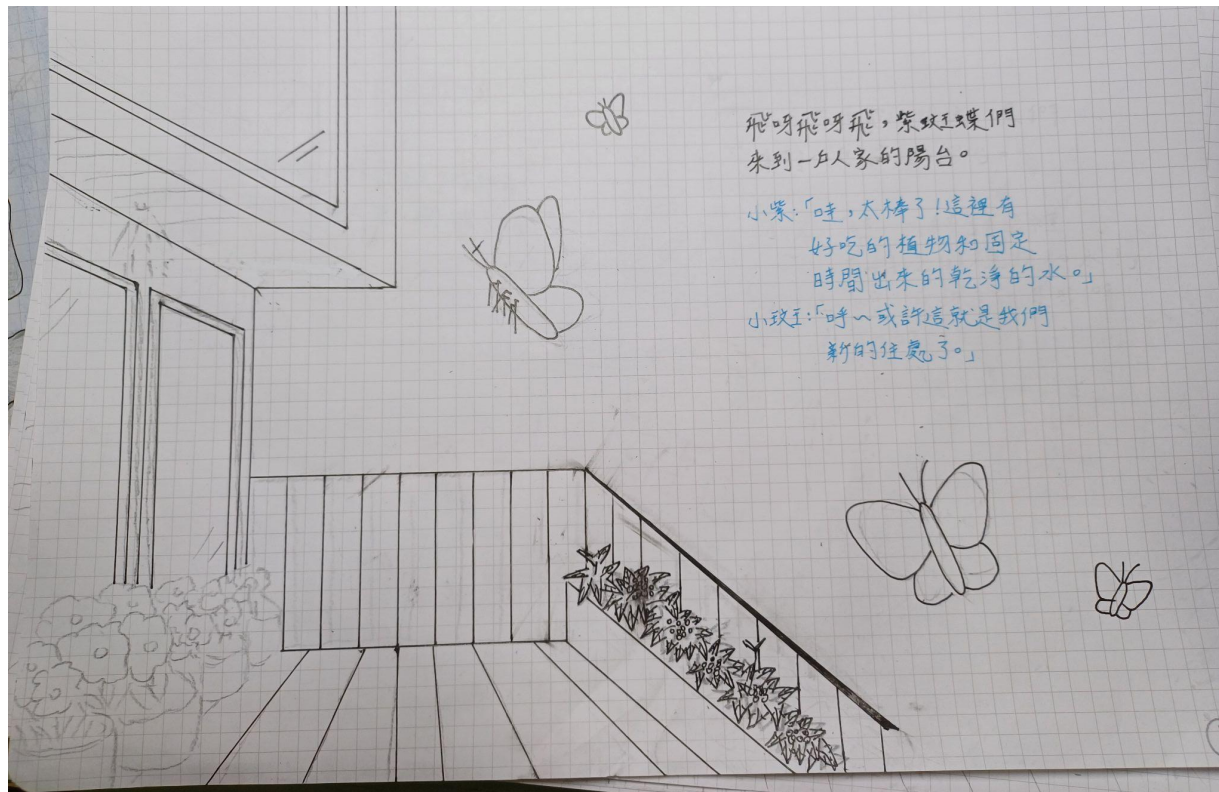 飛呀飛呀飛，紫蚊蝶們
來到一戶人家的陽台。
小紫：「哇，太棒了！這裡有
好吃的植物和固定
時間出來的乾淨的水。」
小玟：「呼～或許這就是我們
新的住處了。」